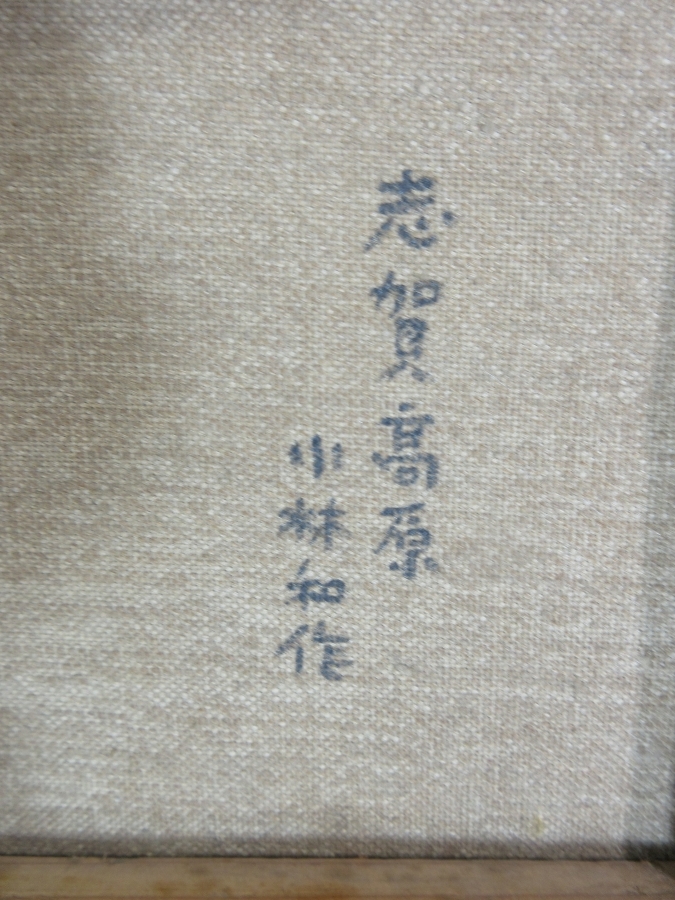 志賀高原
小林和作